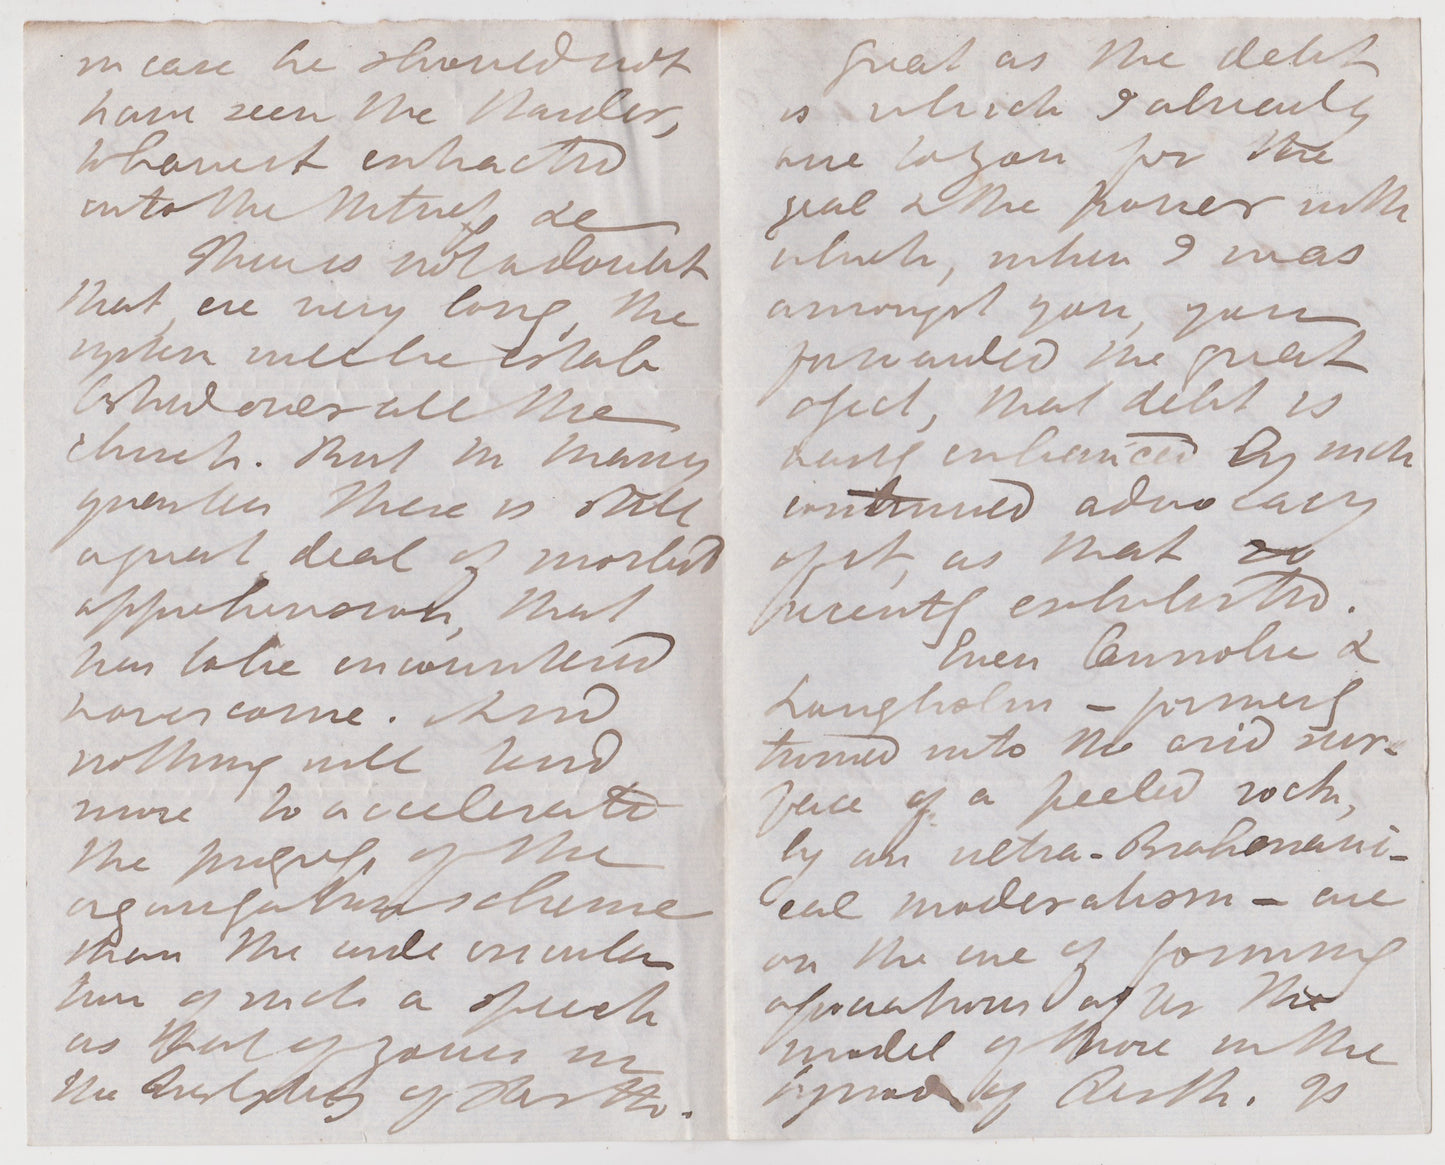 in case he should not
have seen the Warder,
to have it extracted
into the Witness &c
There is not a doubt
that, ere very long, the
system will be estab
lished over all the
church. But in many
quarters there is still
a great deal of morbid
apprehension, that
has to be encountered
& overcome. And
nothing will tend
more to accelerate
the progress of the
organization scheme
than the wide circula
tion of such a speech
as that of yours in
the Presbytery of Perth.
Great as the debt
is which I already
owe to you for the
zeal & the power with
which, when I was
amongst you, you
forwarded the great
object, that debt is
vastly enhanced by such
continued advocacy
of it, as that so
recently exhibited.
Even Cannobie &
Langholm – formerly
turned into the arid sur-
face of a peeled rock,
by an ultra-Brahmani-
cal moderatism – are
on the eve of forming
associations after the
model of those in the
Synod of Perth. Is